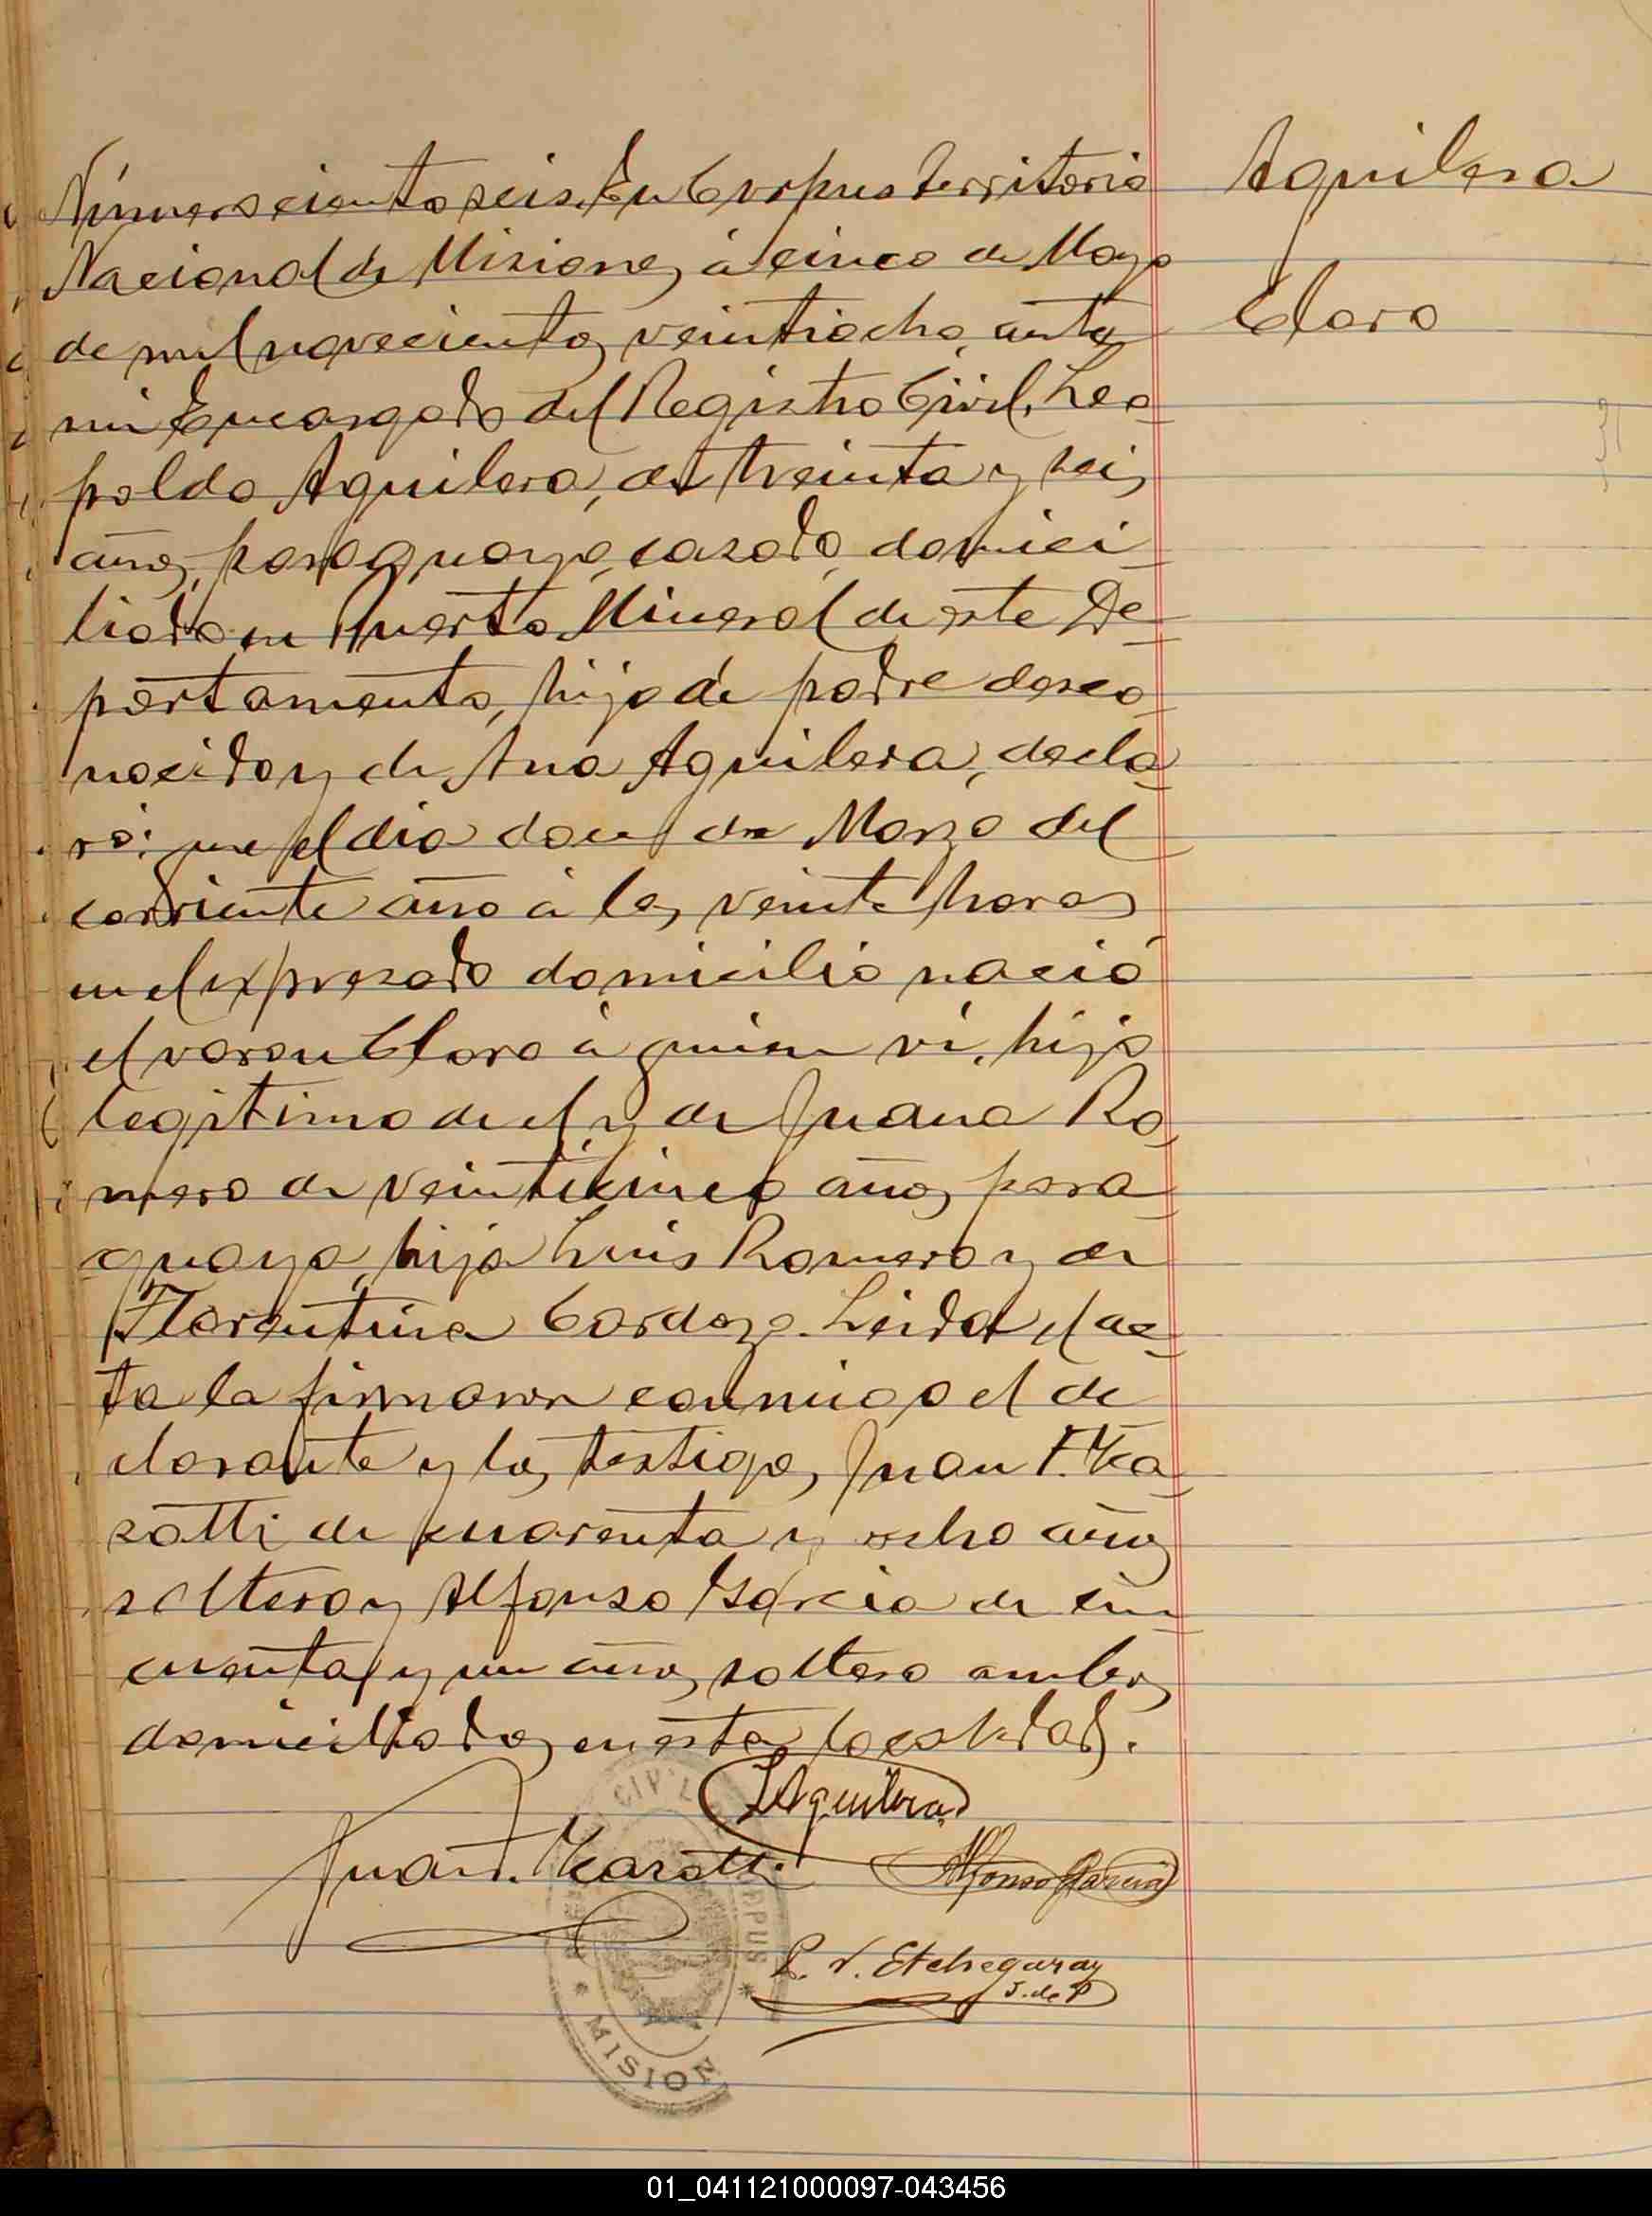 Aguilera
Claro
Número ciento seis. En Corpus Territorio
Nacional de Misiones, á cinco de Mayo
de mil novecientos veintiocho, ante
mi Encargado del Registro Civil, Leo-
poldo Aguilera, de treinta y seis
años, paraguayo, casado, domici-
liado en Puerto Mineral de este De-
partamento, hijo de padre desco-
nocido y de Ana Aguilera, decla-
ró: que el dia doce de Marzo del
corriente año á las veinte horas
en el expresado domicilio nació
el varon Claro á quien vi, hijo
legitimo de el y de Juana Ro-
mero de veinticinco años, para-
guaya, hija Luis Romero y de
Florentina Cardozo. Leida el ac-
ta la firmaron conmigo el de
clarante y los testigos, Juan F.
sotti de cuarenta y ocho años
soltero y Alfonso Garcia de cin-
cuenta y un años, soltero ambos
domiciliados en esta localidad.
LAguilera
Juan F.
Alfonso Garcia
P. V. Etchegaray
J. de P
CIVIL CORPUS * MISIONES *
01_041121000097-043456